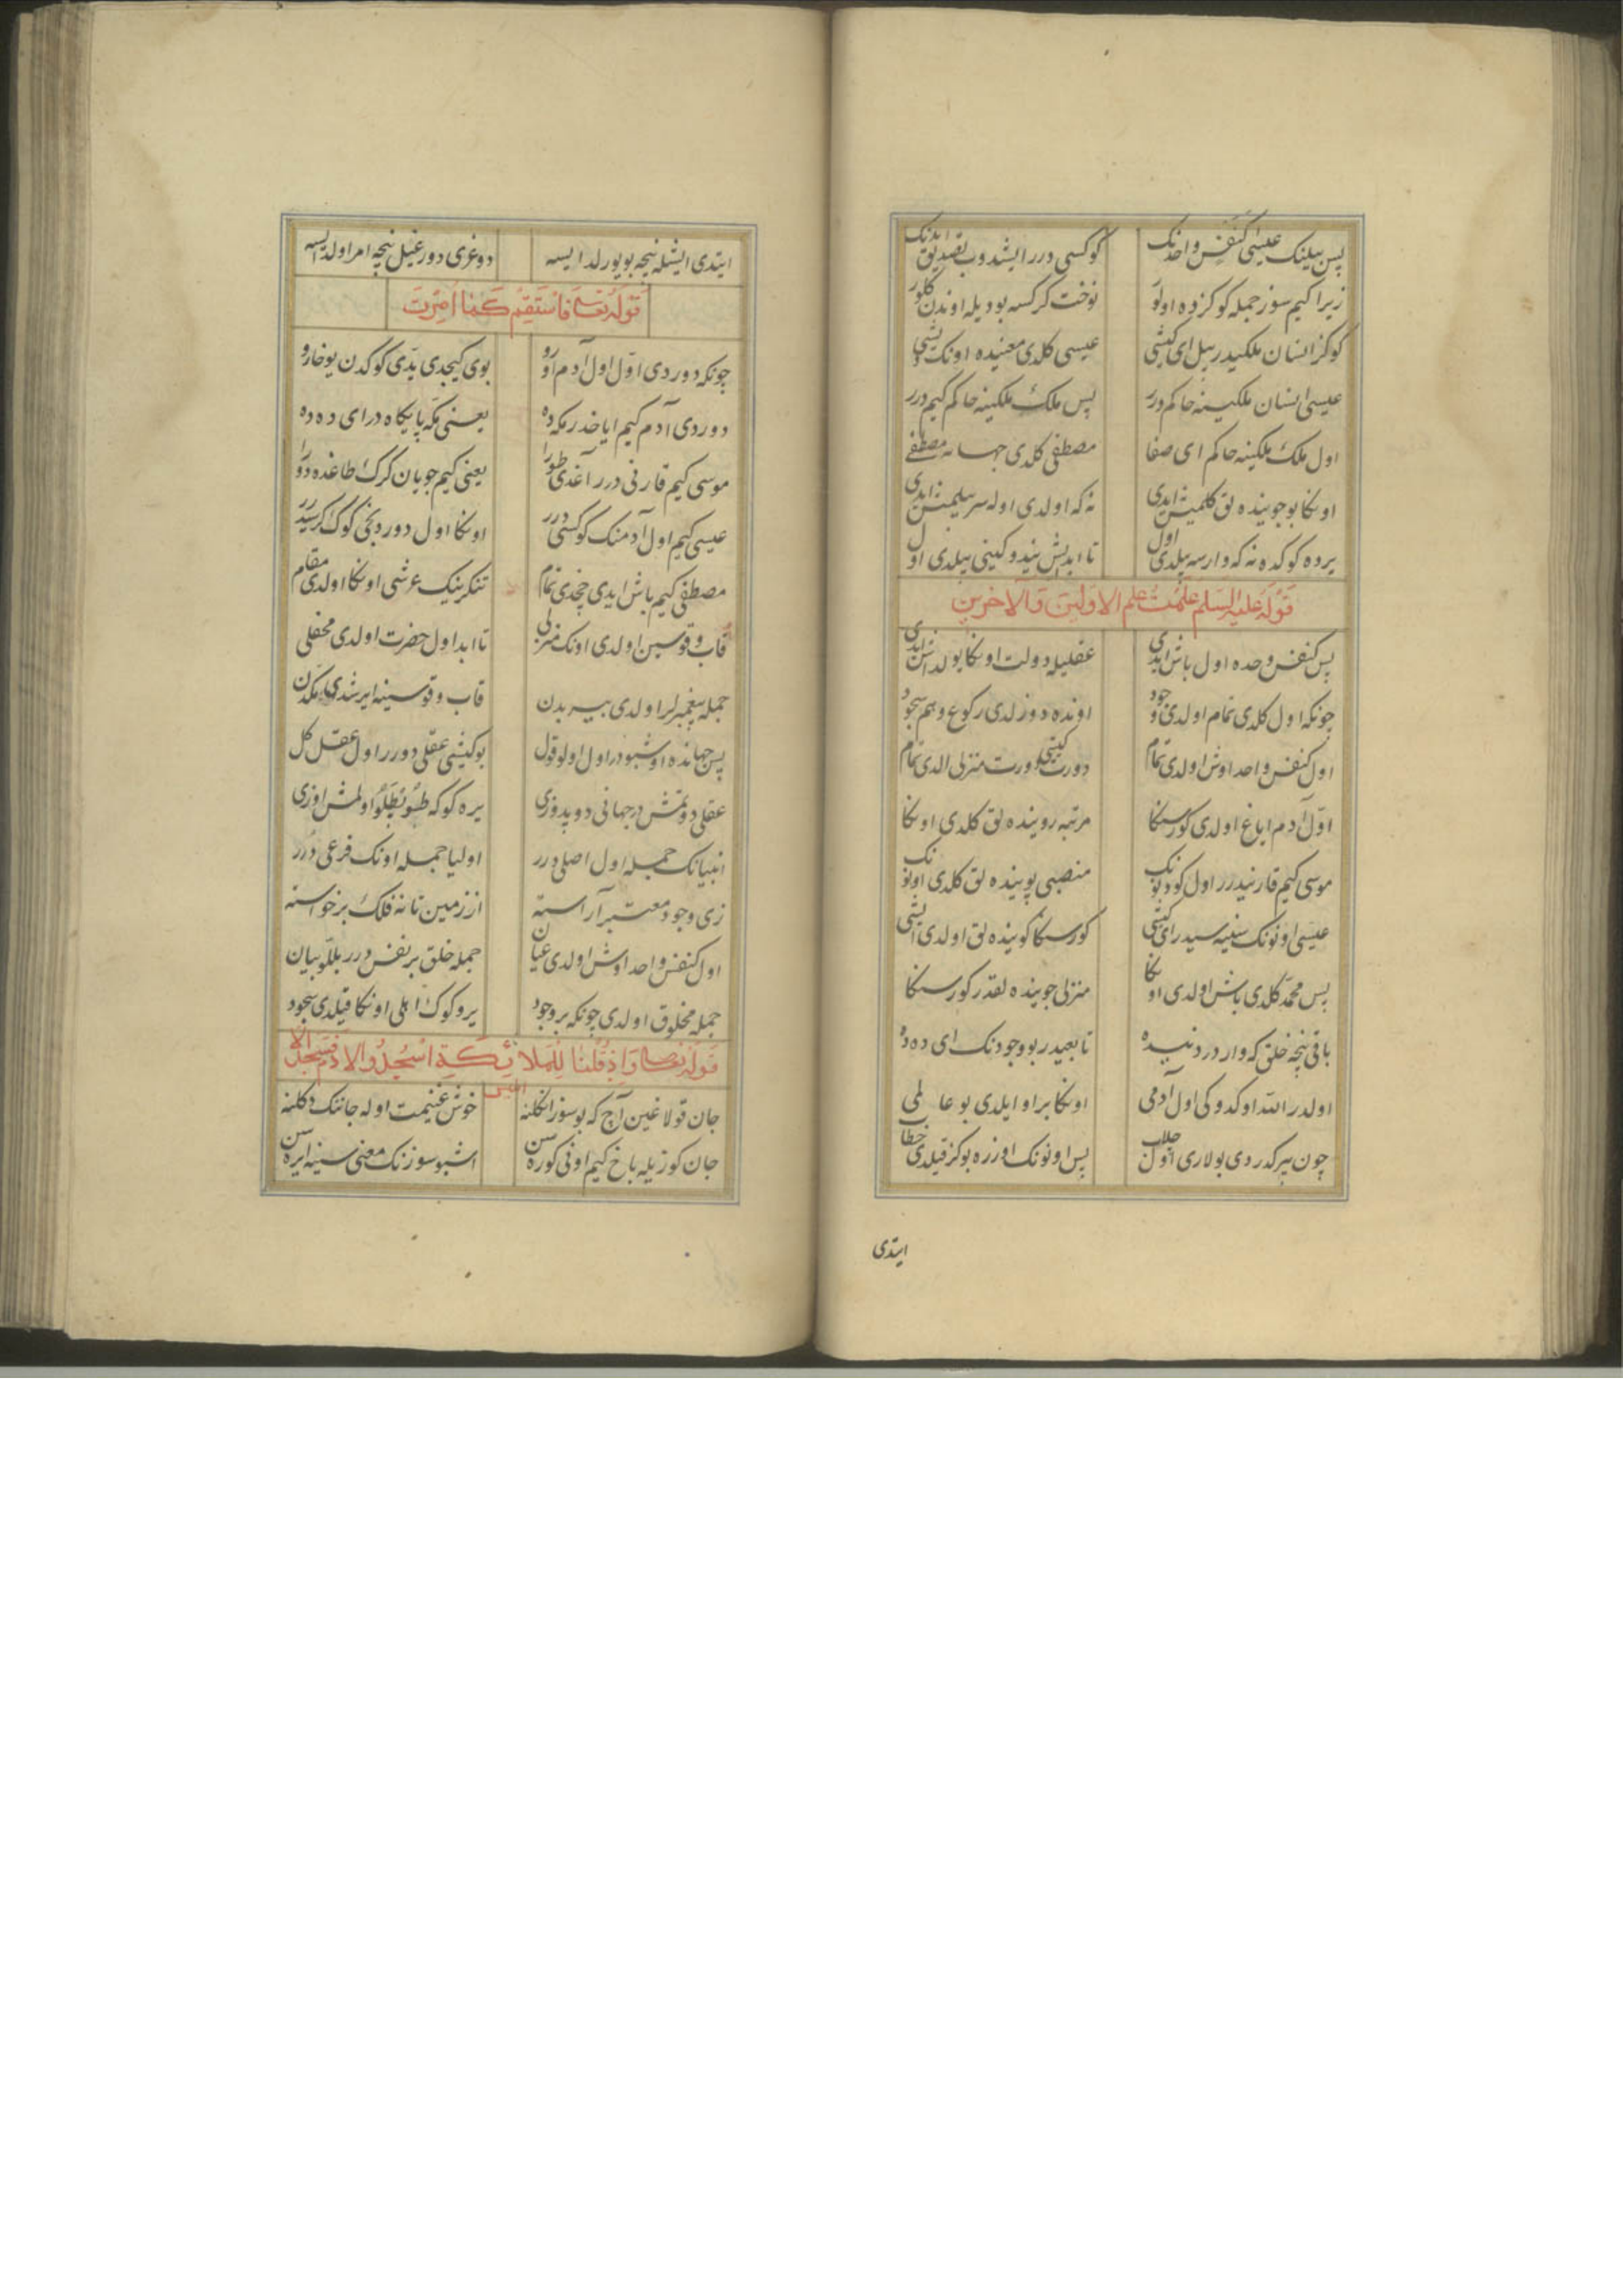 پس بیلینک عیسی کنفس واحدنک کوکسی درر ایشدوب تصدیق ایدنک
زیرا کیم سوز جمله کوکزده اولور نوخت کر کسه بودیله اوندن کلور
کوکز انسان ملکیدر بیل ای کیشی عیسی کلدی معنیده اونک یشی
عیسی انسان ملکینه حاکم درر پس ملک ملکینه حاکم کیم درر
اول ملک ملکینه حاکم ای صفا مصطفی کلدی جهانه مصطفی
اونکا بو جویینده لق کلمیش ایدی نه که اولدی اوله سر بیلمیش ایدی
یرده کوکده نه که وارسه بیلدی اول تا ابد ایش نیدوکینی بیلدی اول
قوله علیه السلم علمت علم الاولین والاخرین
پس کنفس وحده اول باش ایدی عقلیله دولت اونکا یولداش ایدی
چونکه اول کلدی تمام اولدی وجود اونده دوزلدی رکوع و هم سجود
اول کنفس واحد اوش اولدی تمام دورت کیشی دورت منزلی الدی تمام
اول آدم ایاغ اولدی کورسنکا مرتبه روینده لق کلدی اونکا
موسی کیم قارنیدرر اول کودنک منصبی پوینده لق کلدی اونونک
عیسی اونونک سینه سیدر ای کیشی کورسنکا کوینده لق اولدی ایشی
پس محمد کلدی باش اولدی اونکا منزلی جوینده لقدر کورسنکا
باقی نیچه خلق که وار در دنیده تابعیدر بو وجودنک ای دده
اولدر الله اوکدوکی اول آدمی اونکا براو ایلدی بو عالمی
چون بیر کدردی بولاری اول جلاب پس اونونک اوزره بوکز قیلدی خطاب
ایتدی
ایتدی ایشله نیچه بویورلدا ایسه دوغری دورغیل نیچه امر اولدایسه
قوله تعالی فاستقم کما امرت
چونکه دوردی اول اول آدم اورو بوی کیجدی یدی کوکدن یوخارو
دوردی آدم کیم ایاخدر مکه ده یعنی مکه پایکاه در ای دده
موسی کیم قارنی درر آغدی طورا یعنی کیم جویان کرک طاغده دورا
عیسی کیم اول آدمنک کوکسی درر اونکا اول دوردنجی کوک کرسیدرر
مصطفی کیم باش ایدی چخدی تمام تنکرینیک عرشی اونکا اولدی مقام
قاب و قوسین اولدی اونک منزلی تا ابد اول حضرت اولدی محفلی
جمله پیغمبرلر اولدی بیر بدن قاب و قوسینه ایرشدی مکدن
پس جهانده اوشبودر اول اولو قول بو کیشی عقلی دورر اول عقل کل
عقلی دوتمش در جهانی دوپدوزی یره کوکه طبوطلو اولمش اوزی
انبیانک جمله اول اصلی درر اولیا جمله اونک فرعی درر
زی وجود معتبر آراسته از زمین تا نه فلک برخواسته
اول کنفس واحد اوش اولدی عیان جمله خلق بر نفس درر بللو بیان
جمله مخلوق اولدی چونکه بر وجود یر و کوک اهلی اونکا قیلدی سجود
قوله تعالی واذ قلنا للملائکة اسجدوا لادم فسجدوا الا ابلیس
جان قولاغین آچ که بو سوز انکلنه خوش غنیمت اوله جاننک دکلنه
جان کوزیله باخ کیم اونی کوره سن اشبو سوزنک معنی سینه ایره سن